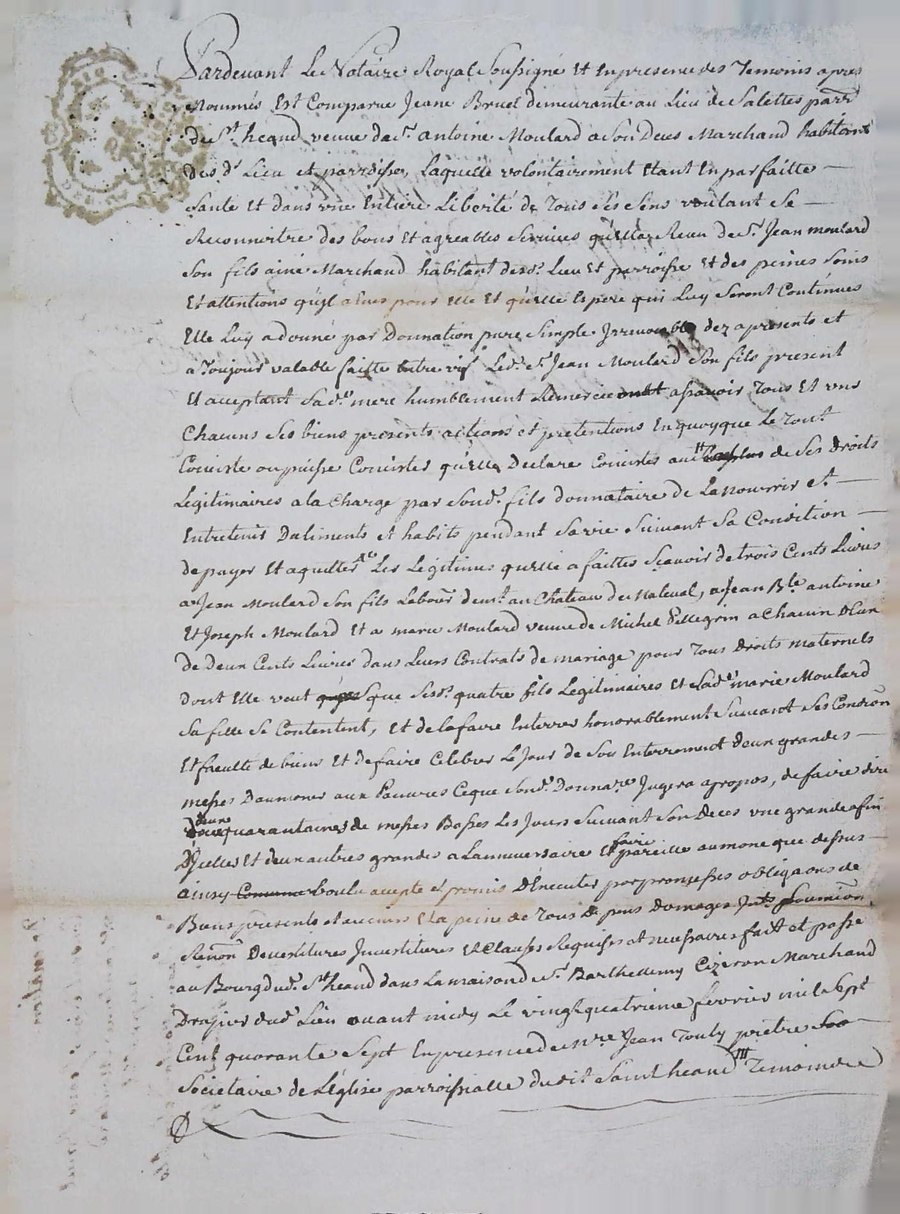 Pardevant Le Notaire Royal Soussigné Et En presence des Temoins apres
Nommés Est Comparue Jeane Bruel demeurante au Lieu de Salettes parr.
de St. heand veuve de Sr. antoine Moulard a Son Deces Marchand habitant
des d. Lieu et parroisse, Laquelle volontairement Etant En parfaitte —
Santé Et dans une Entiere Liberté de Tous Ses Sens voulant Se —
Reconnoitre des bons Et agreables Services qu'elle a Receu de Sr. Jean moulard
Son fils ainé Marchand habitant desd. Lieu Et parroisse Et des peines Soins
Et attentions qu'yl a Eues pour Elle Et qu'elle Espere qui Luy Seront Continués
Elle Luy a donné par Donnation pure Simple Irrevocable dez apresents et
a Toujour valable faitte Entre vifs Led. Sr. Jean Moulard Son fils present
Et acceptant Sad. mere humblement Remerciee a Sçavoir Tous Et uns
Chacuns Ses biens presents actions et pretentions En quoy que Le Tout
Consiste ou puisse Consister qu'elle Declare Consister au de Ses Droits
Legitimaires a la Charge par Sond. fils donnataire de La Nourrir et —
Entretenir Daliments et habits pendant Sa vie Suivant Sa Condition —
de payer Et aquitter Les Legitimes qu'elle a faittes Scavoir de trois Cents Livres
a Jean Moulard Son fils Labour. demt. au Chateau de Maleval, a Jean Bte. antoine
Et Joseph Moulard Et a marie Moulard veuve de Michel Pellegrin a Chacun D'Eux
de Deux Cents Livres dans Leurs Contrats de mariage pour Tous Droits maternels
dont Elle veut que Sesd. quatre fils Legitimaires Et Lade. marie Moulard
Sa fille Se Contentent, Et de la faire Enterrer honorablement Suivant Ses Condion
Et faculté de biens Et de faire Celebrer Le Jour de Son Enterrement deux grandes —
messes Daumoner aux Pauvres Ce que Sond. Donnare. Jugera a propos, de faire dire
deux quarantaines de messes Basses Les Jours Suivant Son Deces une grande a fin
D'ycelles Et deux autres grandes a Lanniversaire Et faire pareille aumone que dessus —
ainsy voulu accepté et promis D'Executer par promesses obligaons de
Biens presents et avenirs Et a peine de Tous Depens Domages Ints. Soumion
Renon Devestitures Investitures Et Clauses Requises et necessaires fait et passé
au Bourg dud. St. heand dans La maison de Sr. Barthelemy Cizeron Marchand
Drapier dud. Lieu avant midy Le vingt quatrieme fevrier mil Sept
Cent quarante Sept En presence de Mre. Jean Touly prêtre
Societaire de L'Eglise parroissialle dudit Saint heand